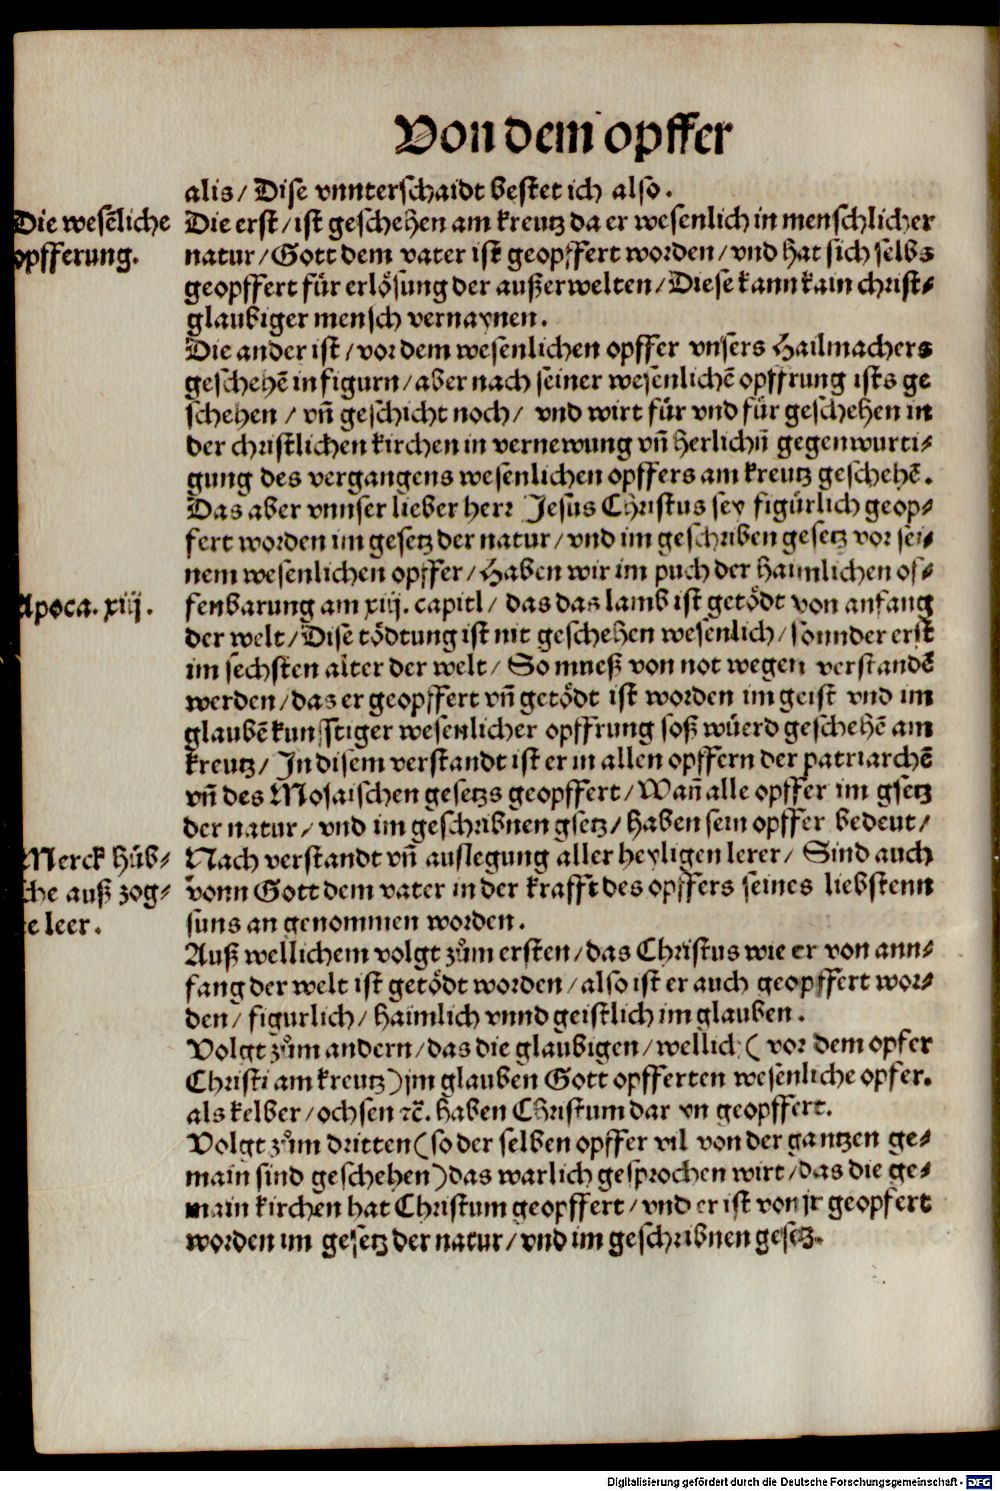 Von dem opffer
alis/ Dise vnnterschaidt bestet ich also.
Die wesēliche
opfferung.
Die erst/ ist geschehen am kreutz da er wesenlich in menschlicher
natur/ Gott dem vater ist geopffert worden/ vnd hat sich selbs
geopffert für erlösung der außerwelten/ Diese kann kain christ⸗
glaubiger mensch vernaynen.
Die ander ist/ vor dem wesenlichen opffer vnsers Hailmachers
geschehē in figurn/ aber nach seiner wesenlichē opffrung ists ge
schehen/ vn̄ geschicht noch/ vnd wirt für vnd für geschehen in
der christlichen kirchen in vernewung vn̄ herlichn̄ gegenwurti⸗
gung des vergangens wesenlichen opffers am kreutz geschehē.
Das aber vnnser lieber herr Jesus Christus sey figürlich geop⸗
fert worden im gesetz der natur/ vnd im geschriben gesetz vor sei⸗
nem wesenlichen opffer/ Haben wir im puch der haimlichen of⸗
Apoca. xiij.
fenbarung am xiij. capitl/ das das lamb ist getödt von anfang
der welt/ Dise tödtung ist nit geschehen wesenlich/ sonnder erst
im sechsten alter der welt/ So mueß von not wegen verstandē
werden/ das er geopffert vn̄ getödt ist worden im geist vnd im
glaubē kunfftiger wesenlicher opffrung soß wüerd geschehē am
kreutz/ In disem verstandt ist er in allen opffern der patriarchē
vn̄ des Mosaischen gesetzs geopffert/ Wan̄ alle opffer im gsetz
der natur/ vnd im geschribnen gsetz/ haben sein opffer bedeut/
Merck hüb⸗
sche auß zog⸗
ne leer.
Nach verstandt vn̄ auslegung aller heyligen lerer/ Sind auch
vonn Gott dem vater in der krafft des opffers seines liebstenn
suns an genommen worden.
Auß wellichem volgt zům ersten/ das Christus wie er von ann⸗
fang der welt ist getödt worden/ also ist er auch geopffert wor⸗
den/ figurlich/ haimlich vnnd geistlich im glauben.
Volgt zům andern/ das die glaubigen/ wellich (vor dem opfer
Christi am kreutz) jm glauben Gott opfferten wesenliche opfer.
als kelber/ ochsen ꝛc̄. haben Christum dar yn geopffert.
Volgt zům dritten (so der selben opffer vil von der gantzen ge⸗
main sind geschehen) das warlich gesprochen wirt/ das die ge⸗
main kirchen hat Christum geopffert/ vnd er ist von jr geopfert
worden im gesetz der natur/ vnd im geschribnen gesetz.
Digitalisierung gefördert durch die Deutsche Forschungsgemeinschaft - DFG